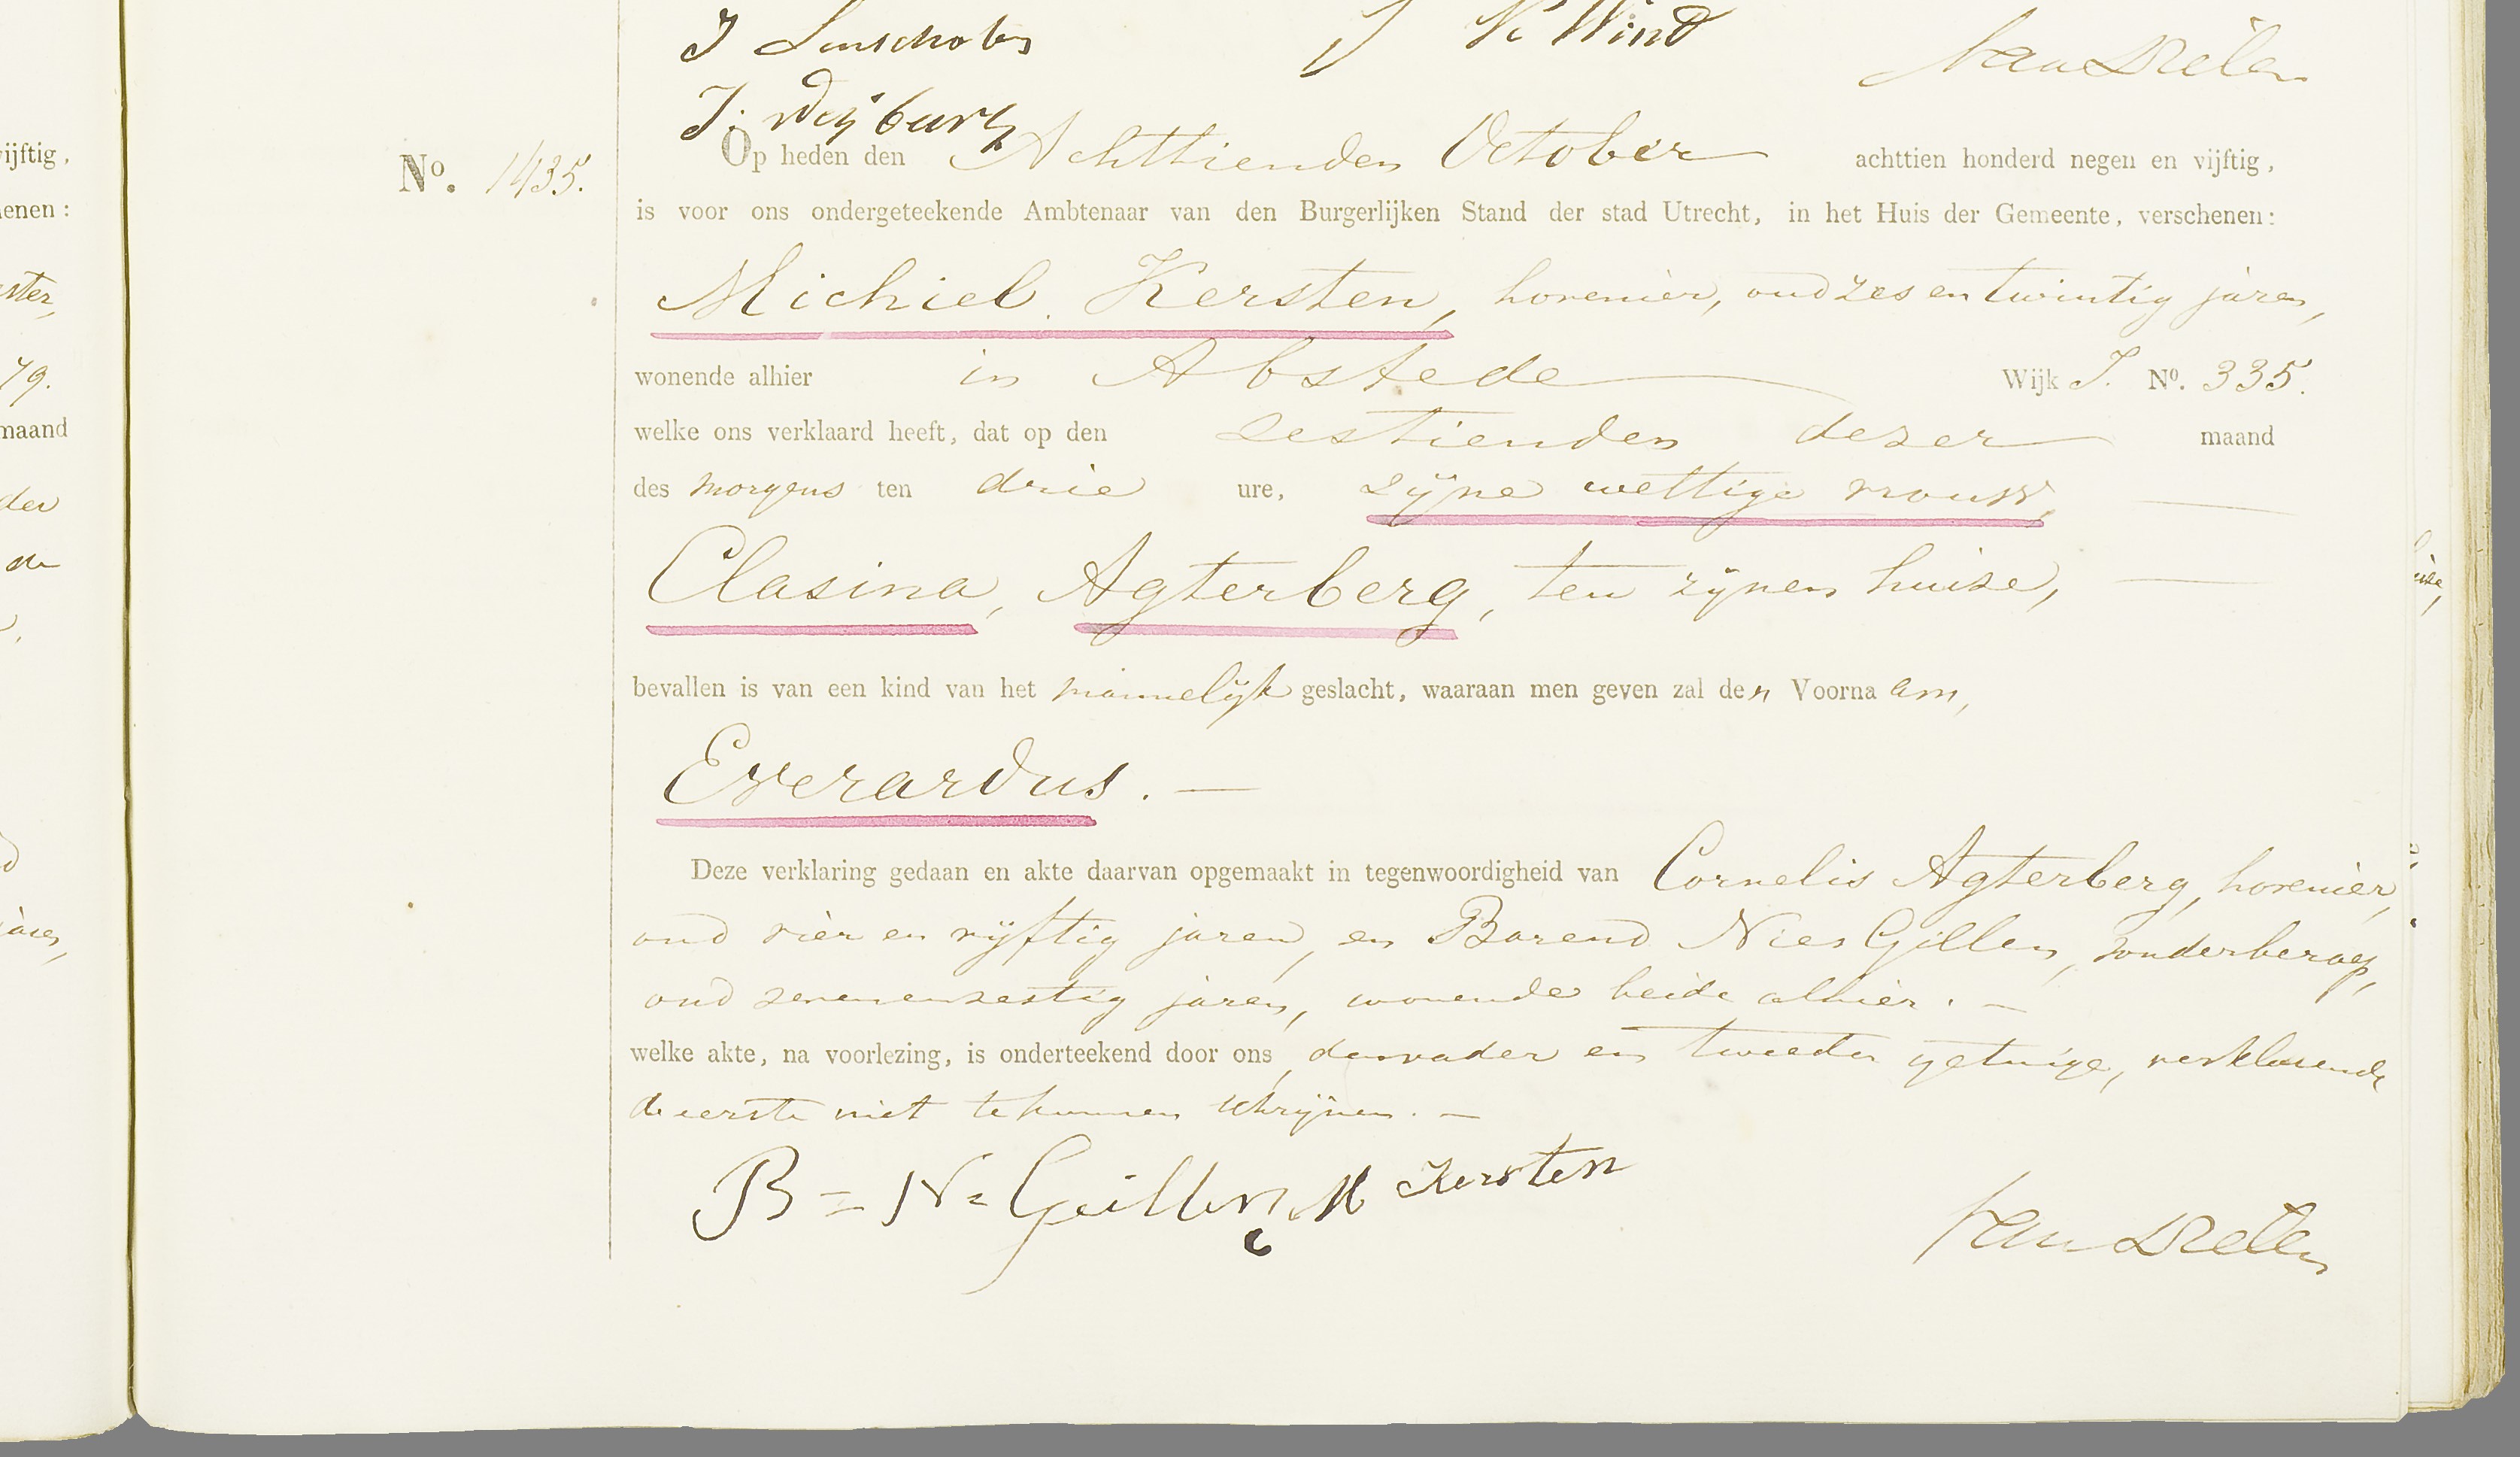 J Linschoten
J de Wind
Van Dielen
J: Weijburg
Op heden den Achttienden October achttien honderd negen en vijftig,
No. 1435.
is voor ons ondergeteekende Ambtenaar van den Burgerlijken Stand der stad Utrecht, in het Huis der Gemeente, verschenen:
Michiel Kersten, hovenier, oud zes en twintig jaren,
wonende alhier in Abstede Wijk J. No. 335.
welke ons verklaard heeft, dat op den zestienden dezer maand
des morgens ten drie ure, zijne wettige vrouw,
Clasina, Agterberg, ten zijnen huize,
bevallen is van een kind van het mannelijk geslacht, waaraan men geven zal den Voornaam,
Everardus. —
Deze verklaring gedaan en akte daarvan opgemaakt in tegenwoordigheid van Cornelis Agterberg, hovenier,
oud vier en vijftig jaren, en Barend Nies Gillen, zonder beroep,
oud zevenenzestig jaren, wonende beide alhier. —
welke akte, na voorlezing, is onderteekend door ons, den vader en tweeden getuige, verklarende
de eerste niet te kunnen schrijven. —
B = N = Geillen M Kersten
Van Dielen
vijftig,
enen:
ster,
79.
maand
der
de
jaren,